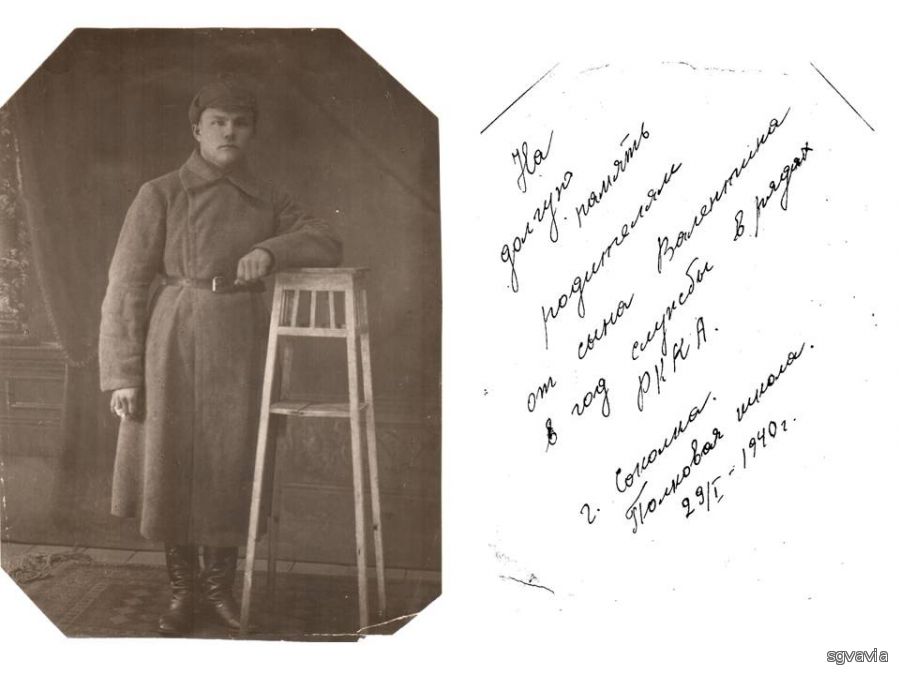 На
долгую
память
родителям
от сына Валентина
в год службы в рядах
РККА.
г. Соколка.
Полковая школа.
29/I-1940г.
sgvavia